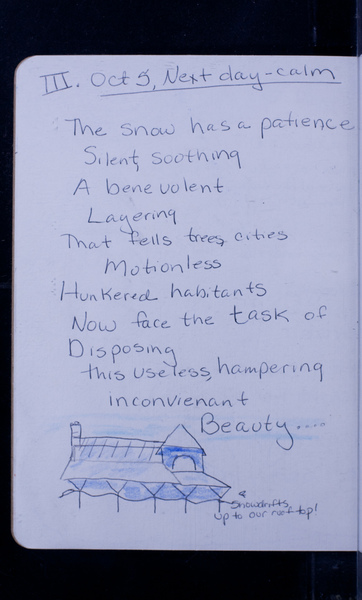 III. Oct 5, Next day-calm
The snow has a patience
Silent, soothing
A benevolent
Layering
That fells trees, cities
Motionless
Hunkered habitants
Now face the task of
Disposing
this useless, hampering
inconvienant
Beauty....
Snowdrifts
up to our rooftop!